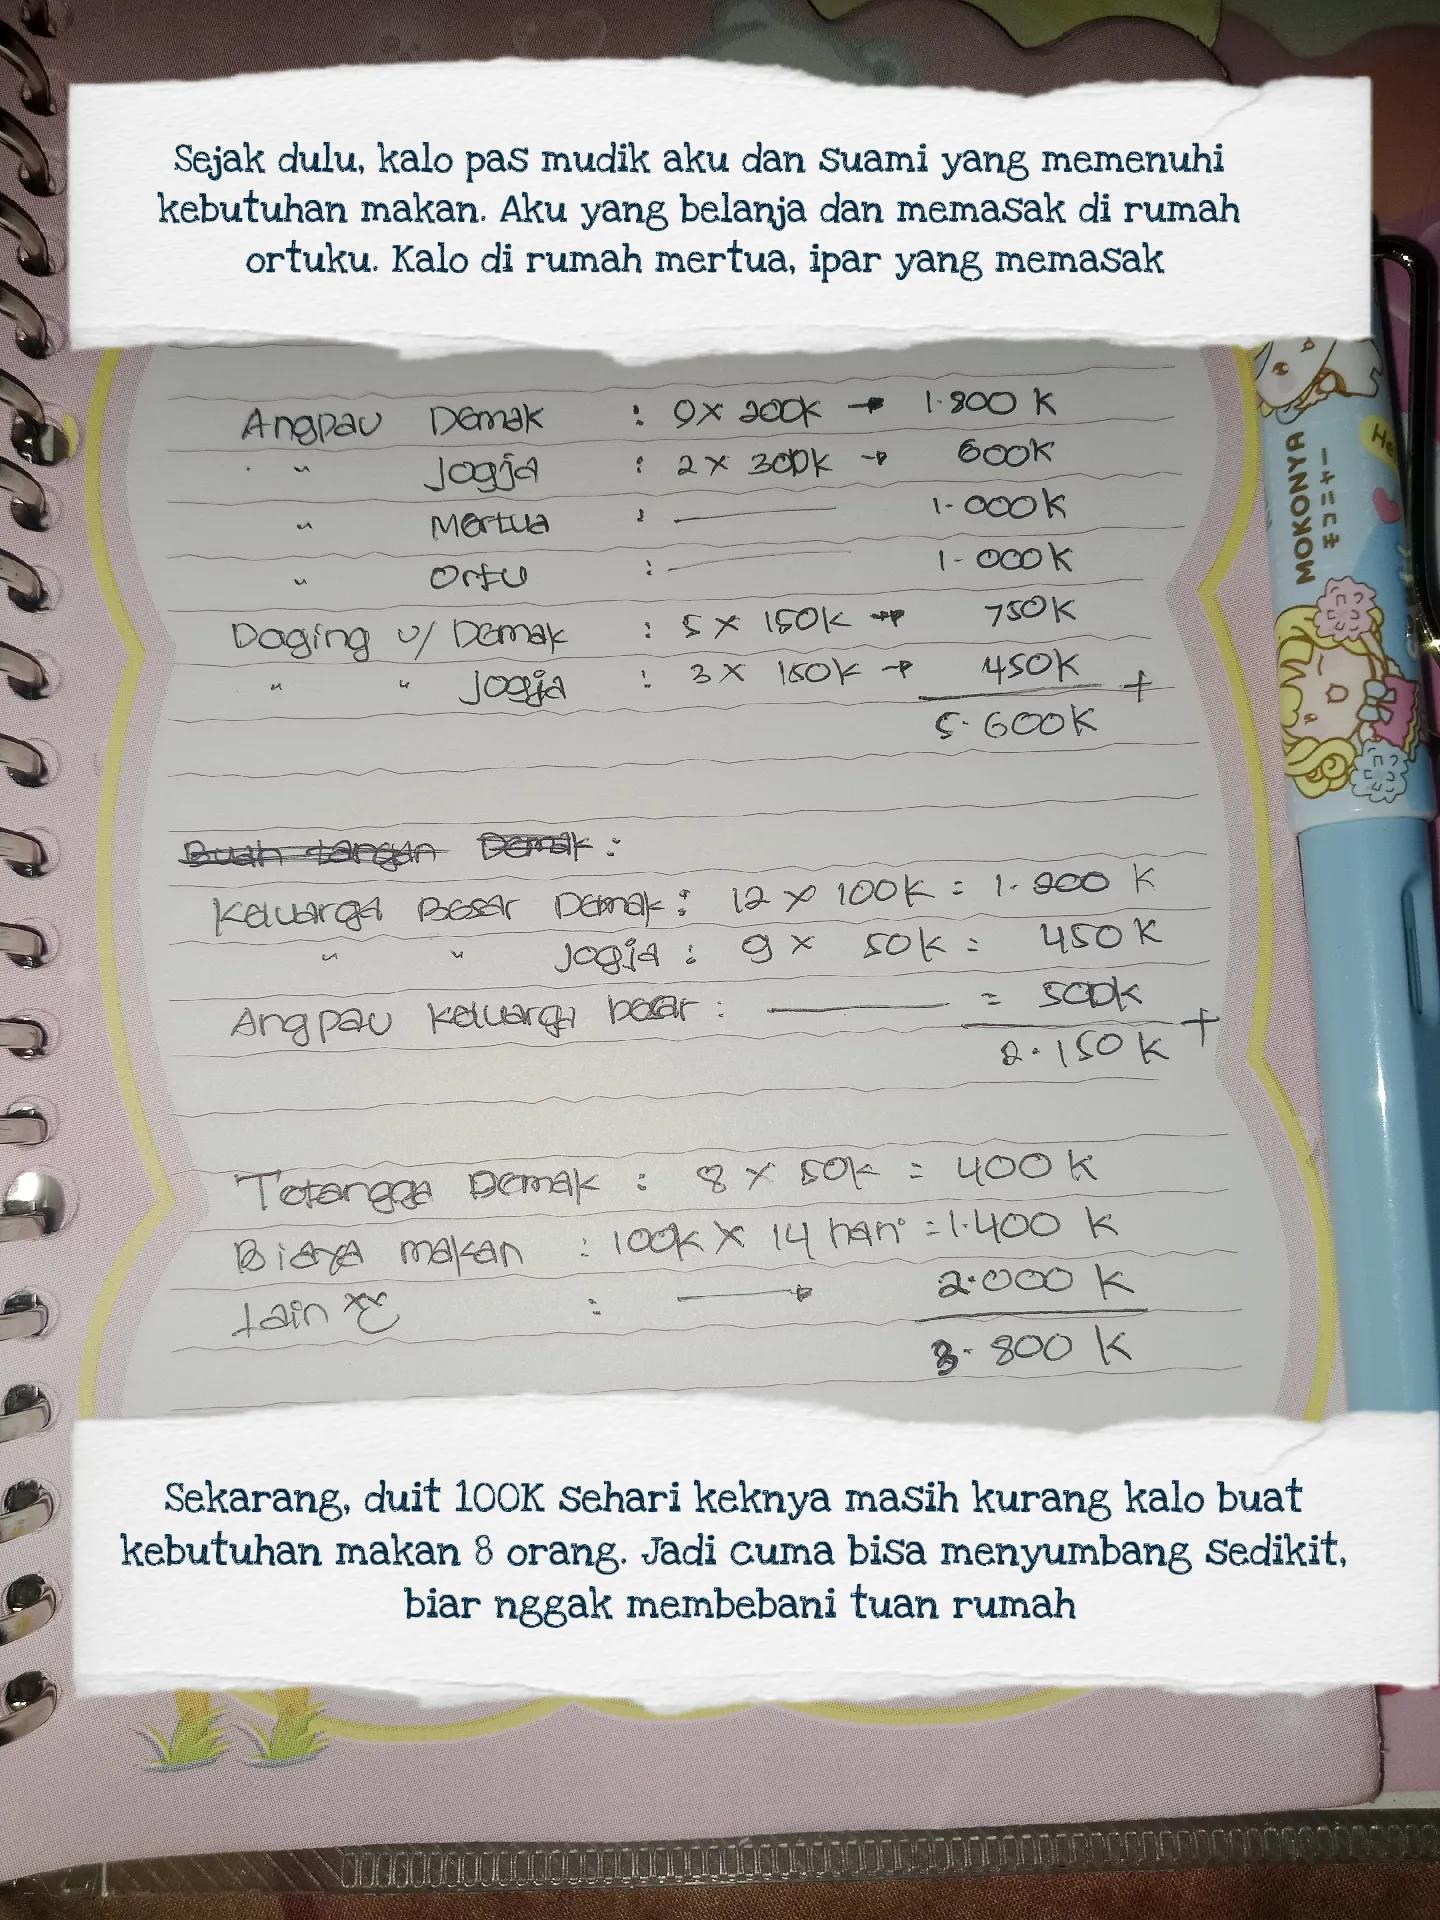 Sejak dulu, kalo pas mudik aku dan suami yang memenuhi
kebutuhan makan. Aku yang belanja dan memasak di rumah
ortuku. Kalo di rumah mertua, ipar yang memasak
Angpau Demak : 9 x 200k → 1.800 K
" Jogja : 2 x 300k → 600K
" Mertua : — 1.000K
" Ortu : — 1.000K
Daging u/ Demak : 5 x 150k → 750K
" " Jogja : 3 x 150k → 450K +
5.600K
Buah tangan Demak :
Keluarga Besar Demak : 12 x 100K = 1.200 K
" " Jogja : 9 x 50k = 450K
Angpau keluarga besar : — = 500k +
2.150 K
Tetangga Demak : 8 x 50k = 400 K
Biaya makan : 100k x 14 hari = 1.400 K
Lain : → 2.000 K
3.800 K
MOKONYA
モコニャー
He
Sekarang, duit 100K sehari keknya masih kurang kalo buat
kebutuhan makan 8 orang. Jadi cuma bisa menyumbang sedikit,
biar nggak membebani tuan rumah